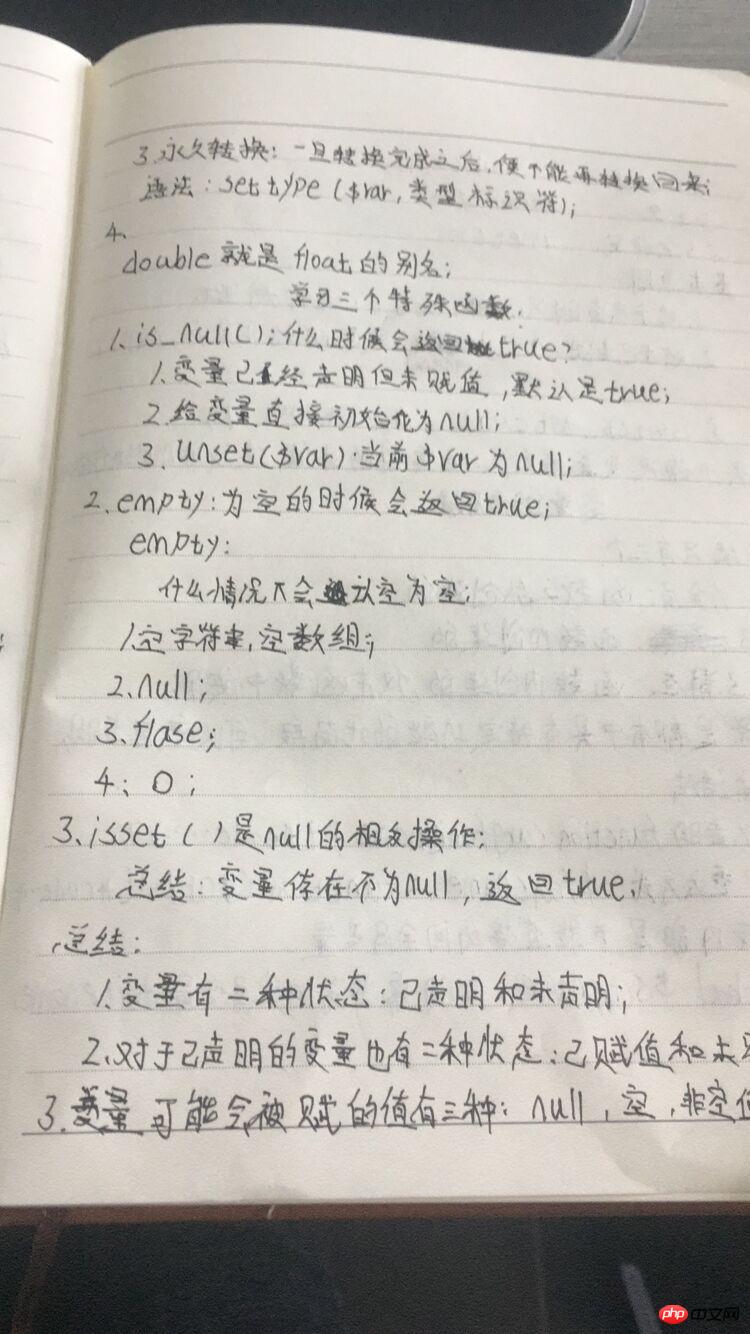 3.永久转换：一旦转换完成之后,便不能再转换回来;
语法：settype($var,类型标识符);
4、
double就是float的别名;
学习三个特殊函数.
1.is_null();什么时候会返回true?
1.变量已经声明但未赋值,默认是true;
2.给变量直接初始化为null;
3.unset($var).当前$var为null;
2.empty:为空的时候会返回true;
empty:
什么情况下会认空为空;
1.空字符串,空数组;
2.null;
3.flase;
4; 0;
3.isset()是null的相反操作;
总结:变量存在不为null,返回true.
总结:
1.变量有二种状态:已声明和未声明;
2.对于已声明的变量也有二种状态:已赋值和未
3.变量可能会被赋的值有三种: null,空,非空
php 中文网